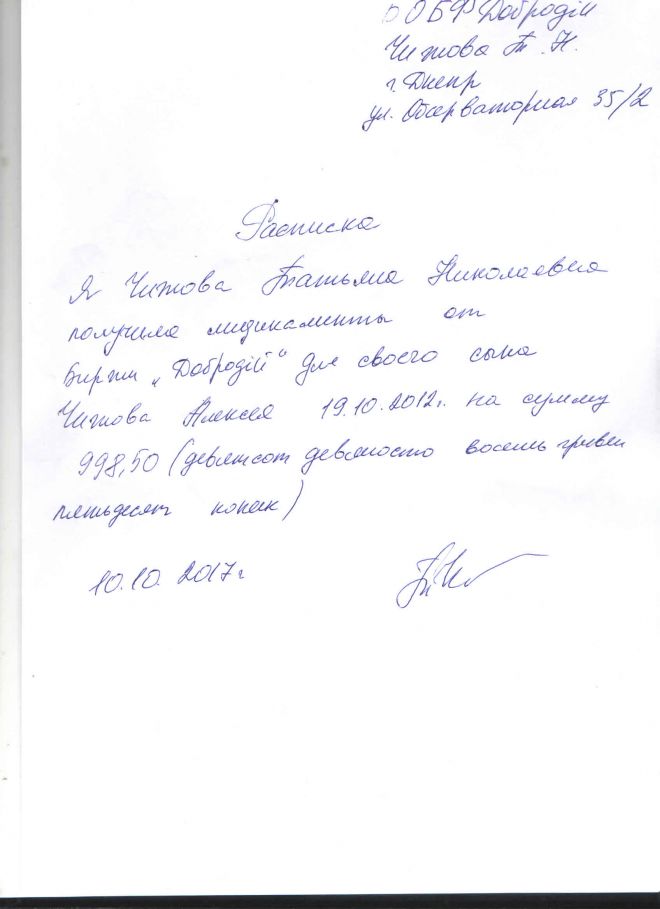 ООБФ Добродій
Чижова Т. Н.
г. Днепр
ул. Обсерваторная 35/2
Расписка
Я Чижова Татьяна Николаевна
получила медикаменты от
Биржи „Добродій" для своего сына
Чижова Алексея 19.10.2012г. на сумму
998,50 (девятсот девяносто восемь гривен
пятьдесят копеек)
10.10.2017г